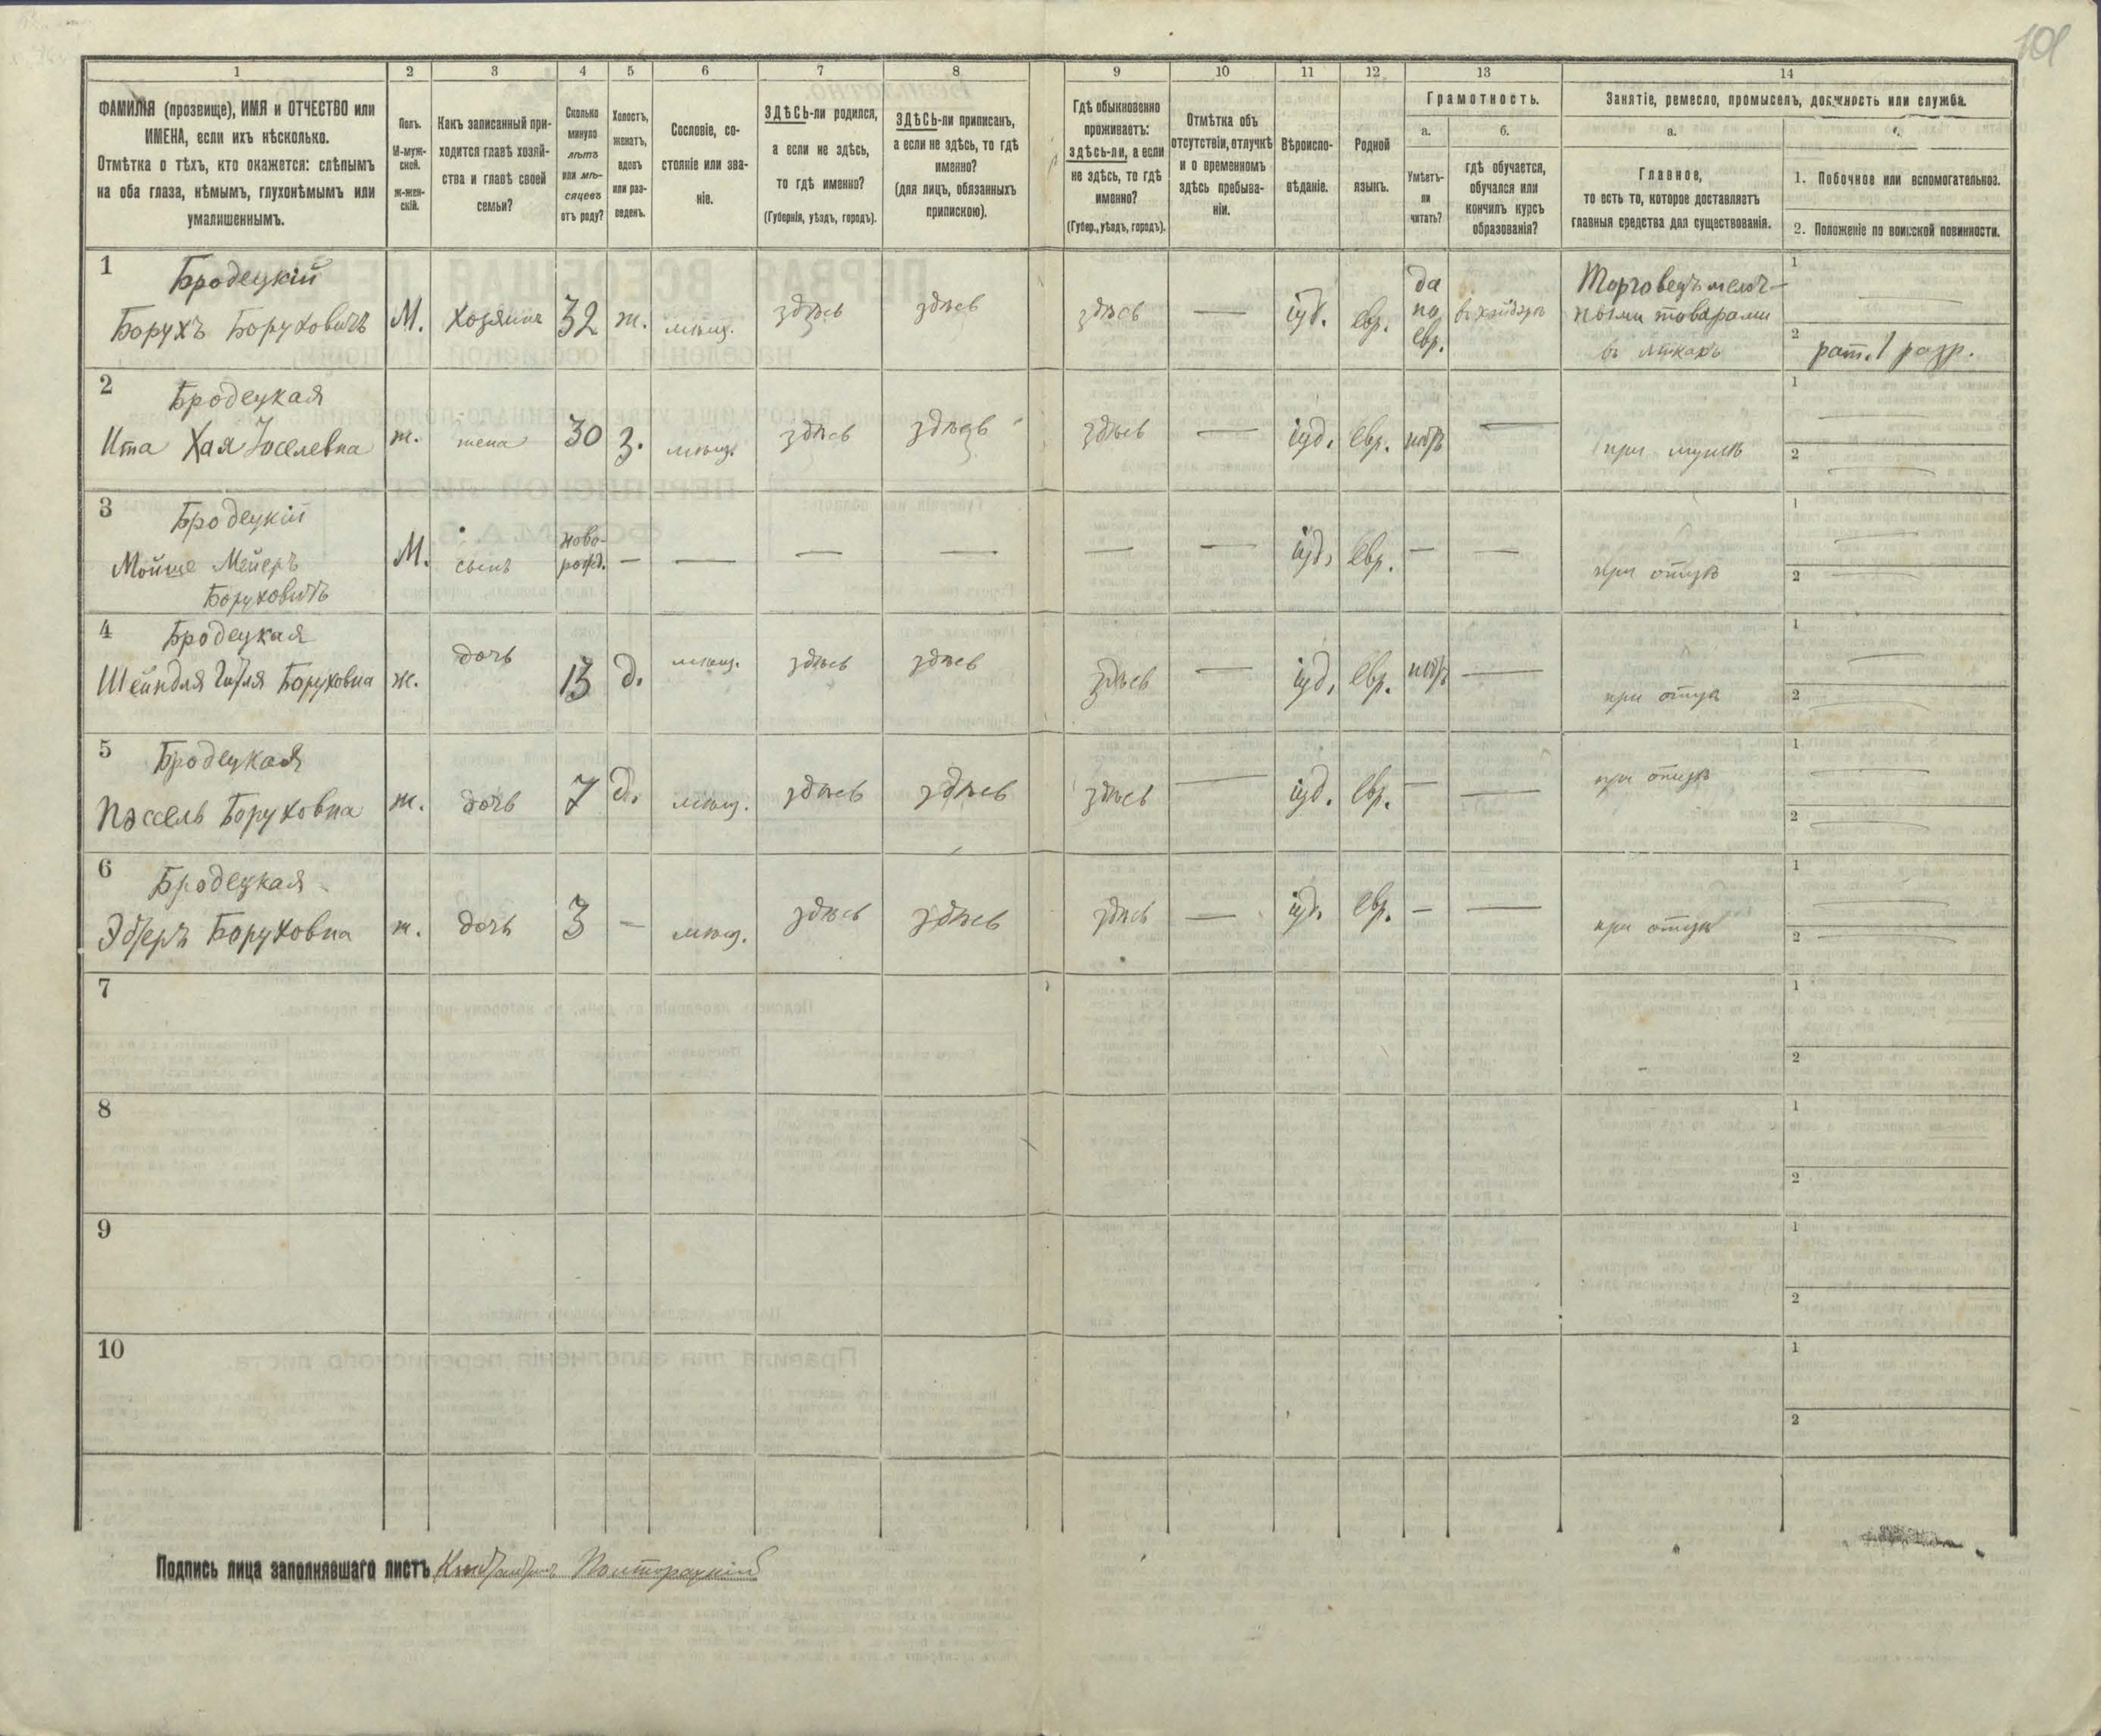 101
1 2 3 4 5 6 7 8 9 10 11 12 13 14
ФАМИЛІЯ (прозвище), ИМЯ и ОТЧЕСТВО или
ИМЕНА, если ихъ нѣсколько.
Отмѣтка о тѣхъ, кто окажется: слѣпымъ
на оба глаза, нѣмымъ, глухонѣмымъ или
умалишеннымъ.
Полъ.
М-муж-
ской.
Ж-жен-
скій.
Какъ записанный при-
ходится главѣ хозяй-
ства и главѣ своей
семьи?
Сколько
минуло
лѣтъ
или мѣ-
сяцевъ
отъ роду?
Холостъ,
женатъ,
вдовъ
или раз-
веденъ.
Сословіе, со-
стояніе или зва-
ніе.
ЗДѢСЬ-ли родился,
а если не здѣсь,
то гдѣ именно?
(Губернія, уѣздъ, городъ).
ЗДѢСЬ-ли приписанъ,
а если не здѣсь, то гдѣ
именно?
(для лицъ, обязанныхъ
припискою).
Гдѣ обыкновенно
проживаетъ:
здѣсь-ли, а если
не здѣсь, то гдѣ
именно?
(Губер., уѣздъ, городъ).
Отмѣтка объ
отсутствіи, отлучкѣ
и о временномъ
здѣсь пребыва-
ніи.
Вѣроиспо-
вѣданіе.
Родной
языкъ.
Грамотность.
а.
Умѣетъ-
ли
читать?
б.
гдѣ обучается,
обучался или
кончилъ курсъ
образованія?
Занятіе, ремесло, промыселъ, должность или служба.
а.
Главное,
то есть то, которое доставляетъ
главныя средства для существованія.
1. Побочное или вспомогательное.
2. Положеніе по воинской повинности.
1
Бродецкій
Борухъ Боруховичъ М. Хозяинъ 32 ж. мѣщ. здѣсь здѣсь здѣсь — іуд. евр.
да
по
евр.
въ хайдерѣ
Торговецъ мелоч-
ными товарами
1 —
2 рат. 1 разр.
2
Бродецкая
Ита Хая Іоселевна ж. жена 30 з. мѣщ. здѣсь здѣсь здѣсь — іуд. евр. нѣтъ — при мужѣ
1 —
2 —
3
Бродецкій
Мойше Мейеръ
Боруховичъ
М. сынъ
ново-
рожд.
— — — — — — іуд. евр. — — при отцѣ
1 —
2 —
4
Бродецкая
Шейндля Гитля Боруховна ж. дочь 13 д. мѣщ. здѣсь здѣсь здѣсь — іуд. евр. нѣтъ — при отцѣ
1 —
2 —
5
Бродецкая
Пэссель Боруховна ж. дочь 7 д. мѣщ. здѣсь здѣсь здѣсь — іуд. евр. — — при отцѣ
1 —
2 —
6
Бродецкая
Боруховна ж. дочь 3 — мѣщ. здѣсь здѣсь здѣсь — іуд. евр. — — при отцѣ
1 —
2 —
7
1
2
8
1
2
9
1
2
10
1
2
Подпись лица заполнявшаго листъ